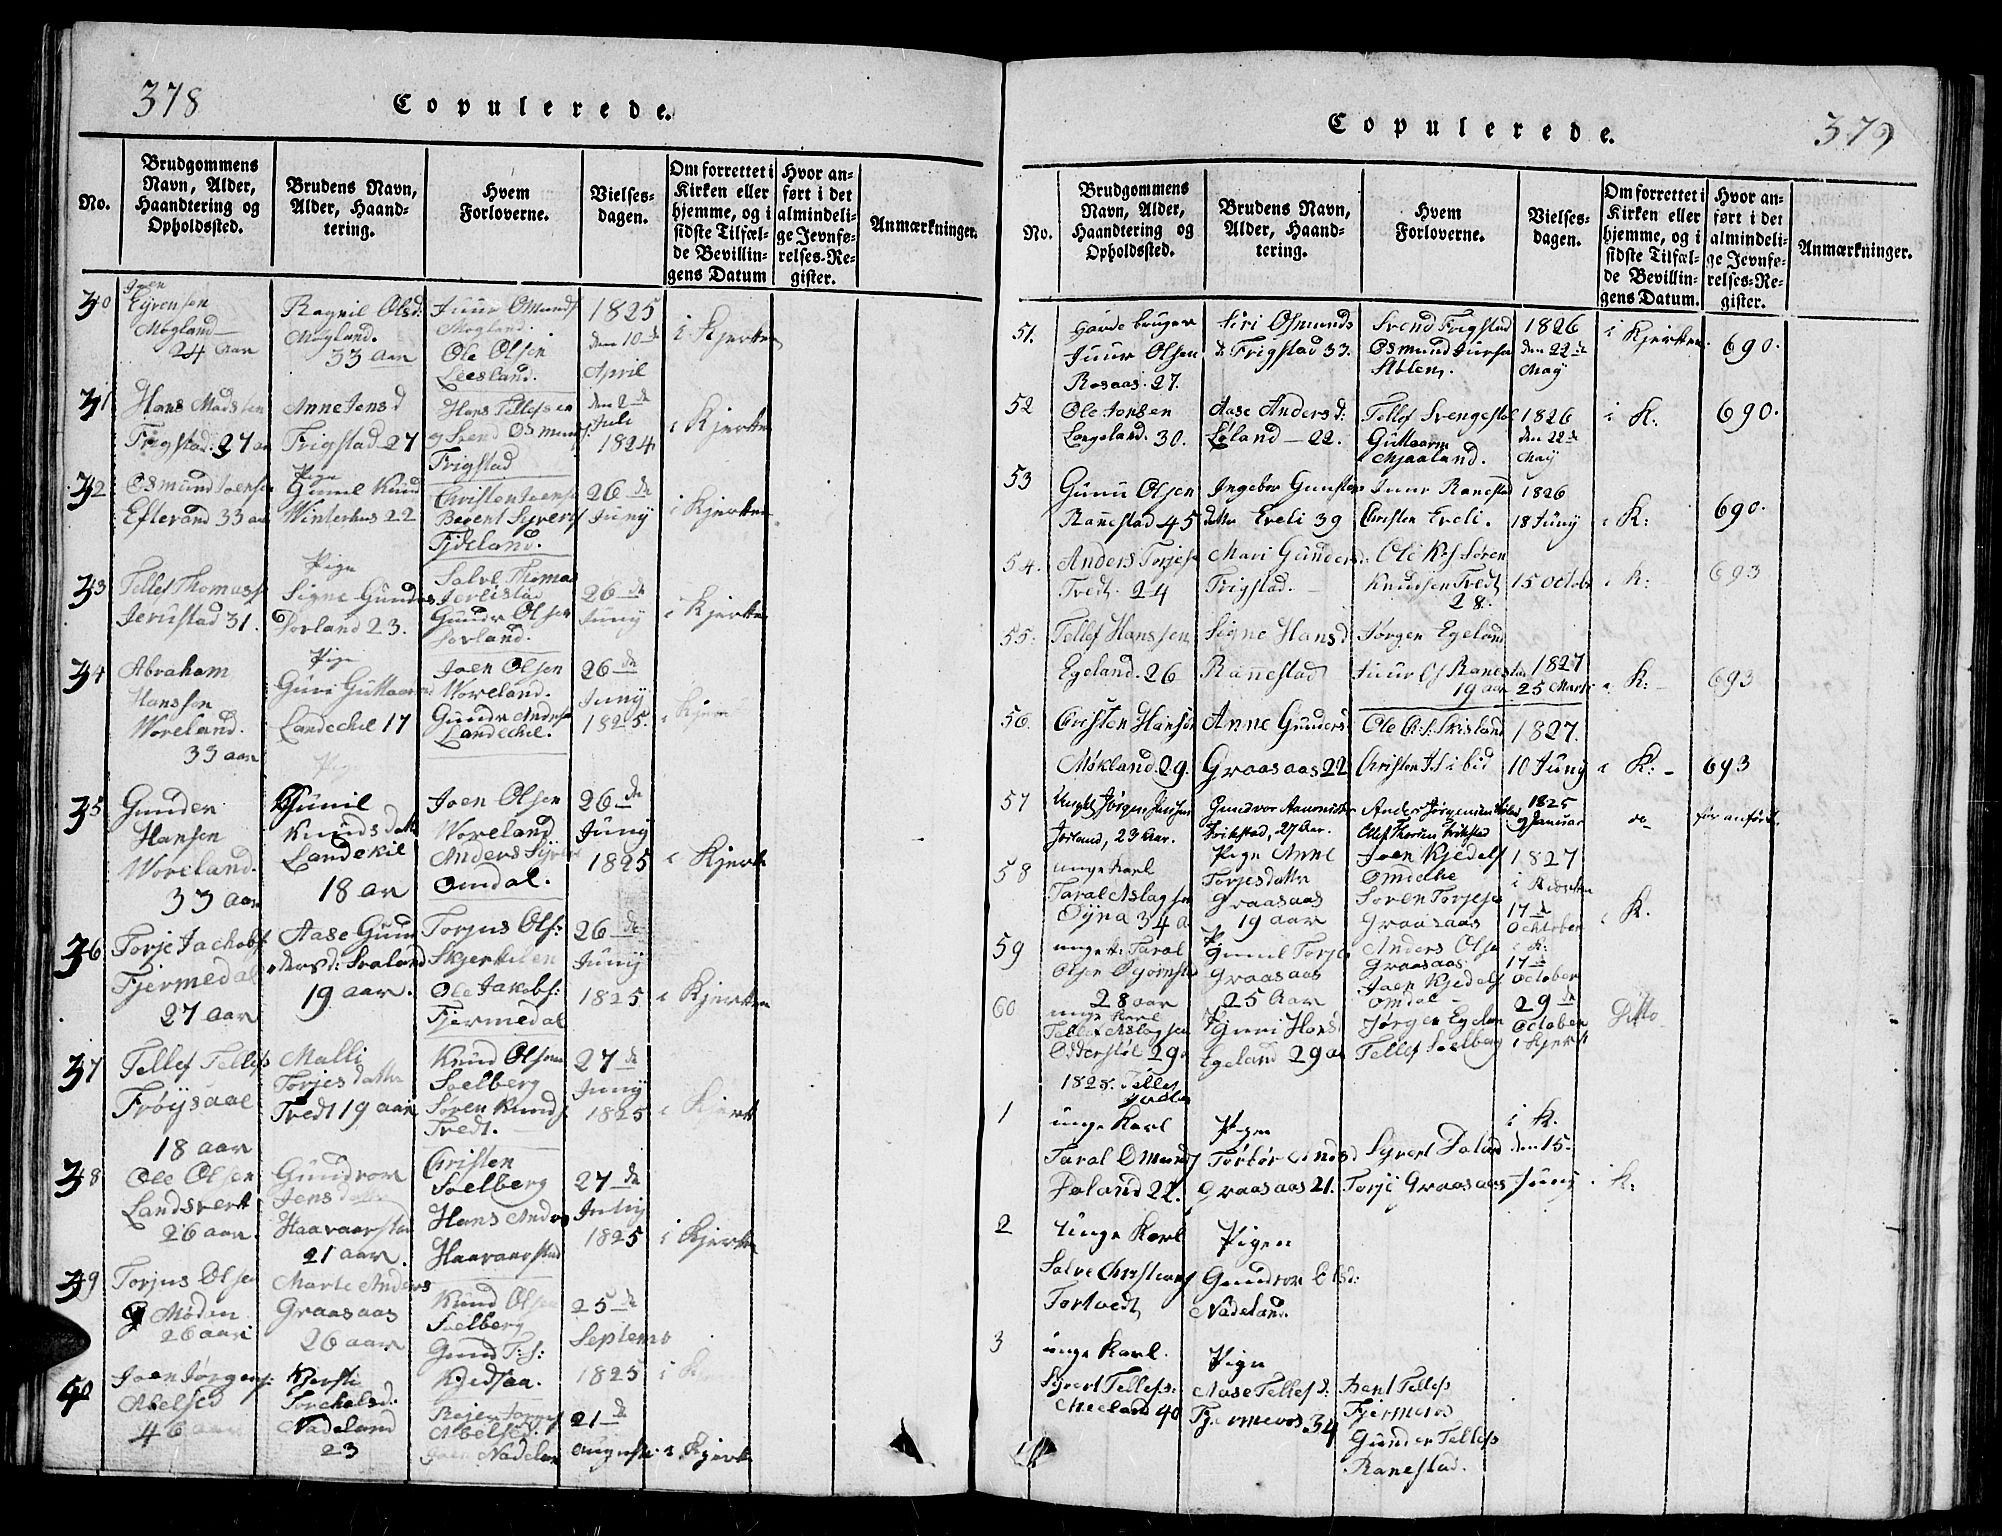 378
Copulerede.
No.
Brudgommens Navn, Alder, Haandtering og Opholdssted.
Brudens Navn, Alder, Haandtering.
Hvem Forloverne.
Vielsesdagen.
Om forrettet i Kirken eller hjemme, og i sidste Tilfælde Bevillingens Datum
Hvor anført i det almindelige Jevnførelses-Register.
Anmærkninger.
30
Joen
Mögland
24 aar
Ragnil Olsd:
Mögland.
33 aar
Juur Omunds
Mögland.
Ole Olsen
Leesland.
1825
den 10de
April
i Kjerken
31
Hans Madssen
Frigstad. 27 aar
Anne Jensd
Frigstad 27
Hans Tellefsen
og Svend Osmunds
Frigstad
den 2de
Juli
1824
i Kjerken
32
Osmund Joensen
Efterand 33 aar
Pige
Gunnil Knud
Winterhus 22
Berent Syvers
Fideland.
26de
Juny
i Kjerken
33
Tellef Thomass
Jerustad 31.
Pige
Signe Gunders
Dorland 23.
Salve Thomas
Gundr Olsen
Dorland.
26de
Juny
i Kjerken
34
Abraham
Hanssen
Woreland.
33 aar
Pige
Guri Guttorms
Landekil 17
Joen Olsen
Woreland.
Gundr Anders
Landekil.
26de
Juny
1825.
i Kjerk
35
Gunder
Hansen
Woreland.
33 aar
Pige
Gunil
Knudsdatter
Landekil
18 ar
Joen Olsen
Woreland
Anders Syver
Omdal.
26de
Juny
1825
i Kjerk
36
Torje Jachobs
Fjermedal
27 aar
Aase Gundersd: Svaland
19 aar.
Torjus Olss:
Skjerkelen
Ole Jakobs:
Fjermedal
26de
Juny
1825
i Kjerken
37
Tellef Tellefs
Fröysaae
18 aar
Malli
Torjesdatter
Tredt 19 aar
Knud Olsen
Soelberg
Sören Knuds
Tredt.
27de
Juny
1825
i Kjerk
38
Ole Olsen
Landsverk
26 aar.
Gundvor
Jensdatter
Haavaarstad
21 aar.
Christen
Soelberg
Hans Anders
Haavaarstad
27de
Juny
1825
i Kjerken
39
Torjus Olsen
Möden
26 aar
Marte Anders
Graasaas
26 aar
Knud Olsen
Soelberg
Gund T:s:
Kjedsaa.
25de
Septemb
1825
i K
40
Joen Jörgens:
Abelsed
46 aar
Kjersti
Torkelsd:
Nadeland
23
Abelsed.
Joen Nadelan
21de
Augusti
i Kjerk
Copulerede.
379
No.
Brudgommens Navn, Alder, Haandtering og Opholdssted.
Brudens Navn, Alder, Haandtering.
Hvem Forloverne.
Vielsesdagen.
Om forrettet i Kirken eller hjemme, og i sidste Tilfælde Bevillingens Datum.
Hvor anført i det almindelige Jevnførelses-Register.
Anmærkninger.
51.
Juur Olsen
Rosaas. 27.
Siri Osmunds
d Frigstad 33.
Svend Frigstad
Osmund Juursen
Stölen.
1826
den 22de
May
i Kjerken
690.
52
Ole Jensen
Langeland. 30.
Aase Andersd:
Löland — 22.
Tellef Svengestøl
Guttorm
Mjaaland.
1826
den 22de
May
i K:
690.
53
Gunu Olsen
Ranestad 45
Ingebor Gunsten
datter Eveli 39
Juur Ranestad
Christen Eveli.
1826
18 Juny
i K:
690.
54.
Anders Torjesen
Tredt. 24
Mari Gundersd:
Frigstad.
Ole K:s Sören
Knudsen Tredt
28.
15 Octobr
i K:
693
55.
Tellef Hanssen
Egeland. 26
Signe Hansd:
Ranestad
Jörgen Egeland
Juur Os Ranestad
19 aar
1827
25 Marti
i K:
693
56.
Christen Hansen
Mökland 29.
Anne Gunders:
Graasaas 22
Ole C:s: Skisland
Christen J:s ibid
1827.
10 Juny
i K:
693
57
Ungkl Jörgen Jensen
23 Aar.
Gundvor
Frikstad, 27 Aar.
Frikstad
1825
9 Januar
do
før anført.
58
unge Karl
Taral Aslagsen
Öyna 34 a
Pige Anne
Torjesdatter
Graasaas
19 aar
Joen Kjedels
Sören Torjesen
Graasaas
1827
i Kierken
17de
October
i K.
59
unge K: Taral
Olsen
28 aar
P
Gunil Torjes
Graasaas
25 Aar
Anders Olsen
Graasaas.
Joen Kjedels
Omdal
i K:
17de
October
60
unge Karl
Tellef Aslagsen
29
Guri Hans
Egeland 29 a
Jörgen Egelan
Tellef Soelberg
29de
October
i Kjerk
Ditto
1828. Telles
1
unge Karl
Taral Omunds
Daland 22.
Pigen
Torbör Anders
Graasaas 21.
Syvert Daland
Torje Graasaas
i K.
den 15
Juny
i K:
2
unge Karl
Salve Christians
Tortvedt
Pigen
Gundvor Olsd:
Nadeland.
3
unge Karl.
Syvert Tellefs:
Meeland 40
Pigen
Aase Tellefsd:
Fjermeros 34
Bent Tellefs
Fjermeros
Gunder Tellefs
Ranestad.